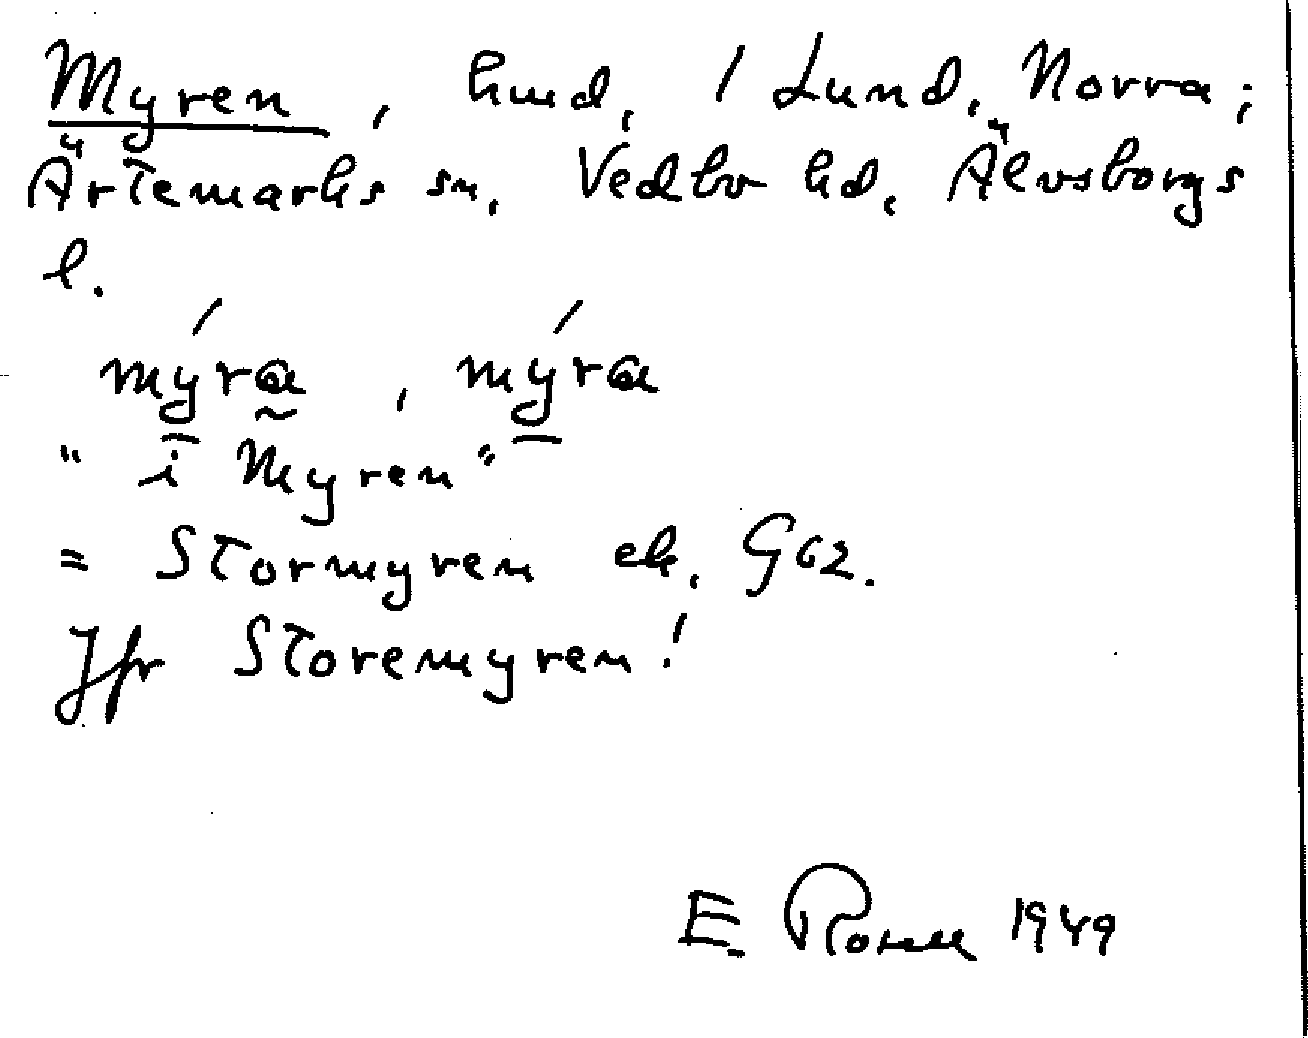 Myren, hmd, / Lund, Norra;
Ärtemarks sn, Vedbo hd, Älvsborgs
l.
mýra, mýra
" i Myren "
= Stormyren ek. G62.
Jfr Storemyren!
E. 1949